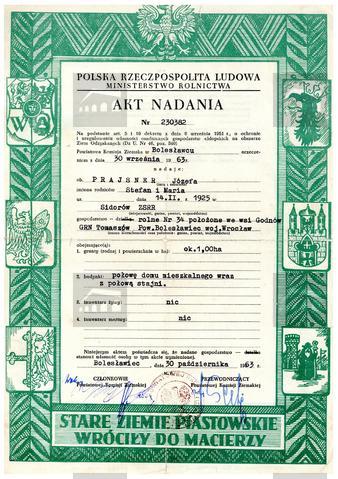 POLSKA RZECZPOSPOLITA LUDOWA
MINISTERSTWO ROLNICTWA
AKT NADANIA
Nr 230382
Na podstawie art. 5 i 10 dekretu z dnia 6 września 1951 r. o ochronie
i uregulowaniu własności osadniczych gospodarstw chłopskich na obszarze
Ziem Odzyskanych (Dz. U. Nr 46, poz. 340)
Powiatowa Komisja Ziemska w Bolesławcu orzecze-
niem z dnia 30 września 1963.
nadaje:
ob. PRAJSNER Józefa
imiona rodziców Stefan i Maria
ur. dnia 14.II. 1925 w
Sidorów ZSRR
gospodarstwo rolne Nr 34 położone we wsi Godnów
GRN Tomaszów Pow.Bolesławiec woj.Wrocław
obejmujące:
1. grunty (rodzaj i powierzchnia w ha) ok.1,00ha
2. budynki: połowę domu mieszkalnego wraz
z połową stajni.
3. inwentarz żywy: nic
4. inwentarz martwy: nic
Niniejszym aktem poświadcza się, że nadane gospodarstwo
stanowi własność osoby w tym akcie wymienionej.
Bolesławiec dnia 30 października 1963
CZŁONKOWIE
Powiatowej Komisji Ziemskiej
PRZEWODNICZĄCY
Powiatowej Komisji Ziemskiej
STARE ZIEMIE PIASTOWSKIE
WRÓCIŁY DO MACIERZY